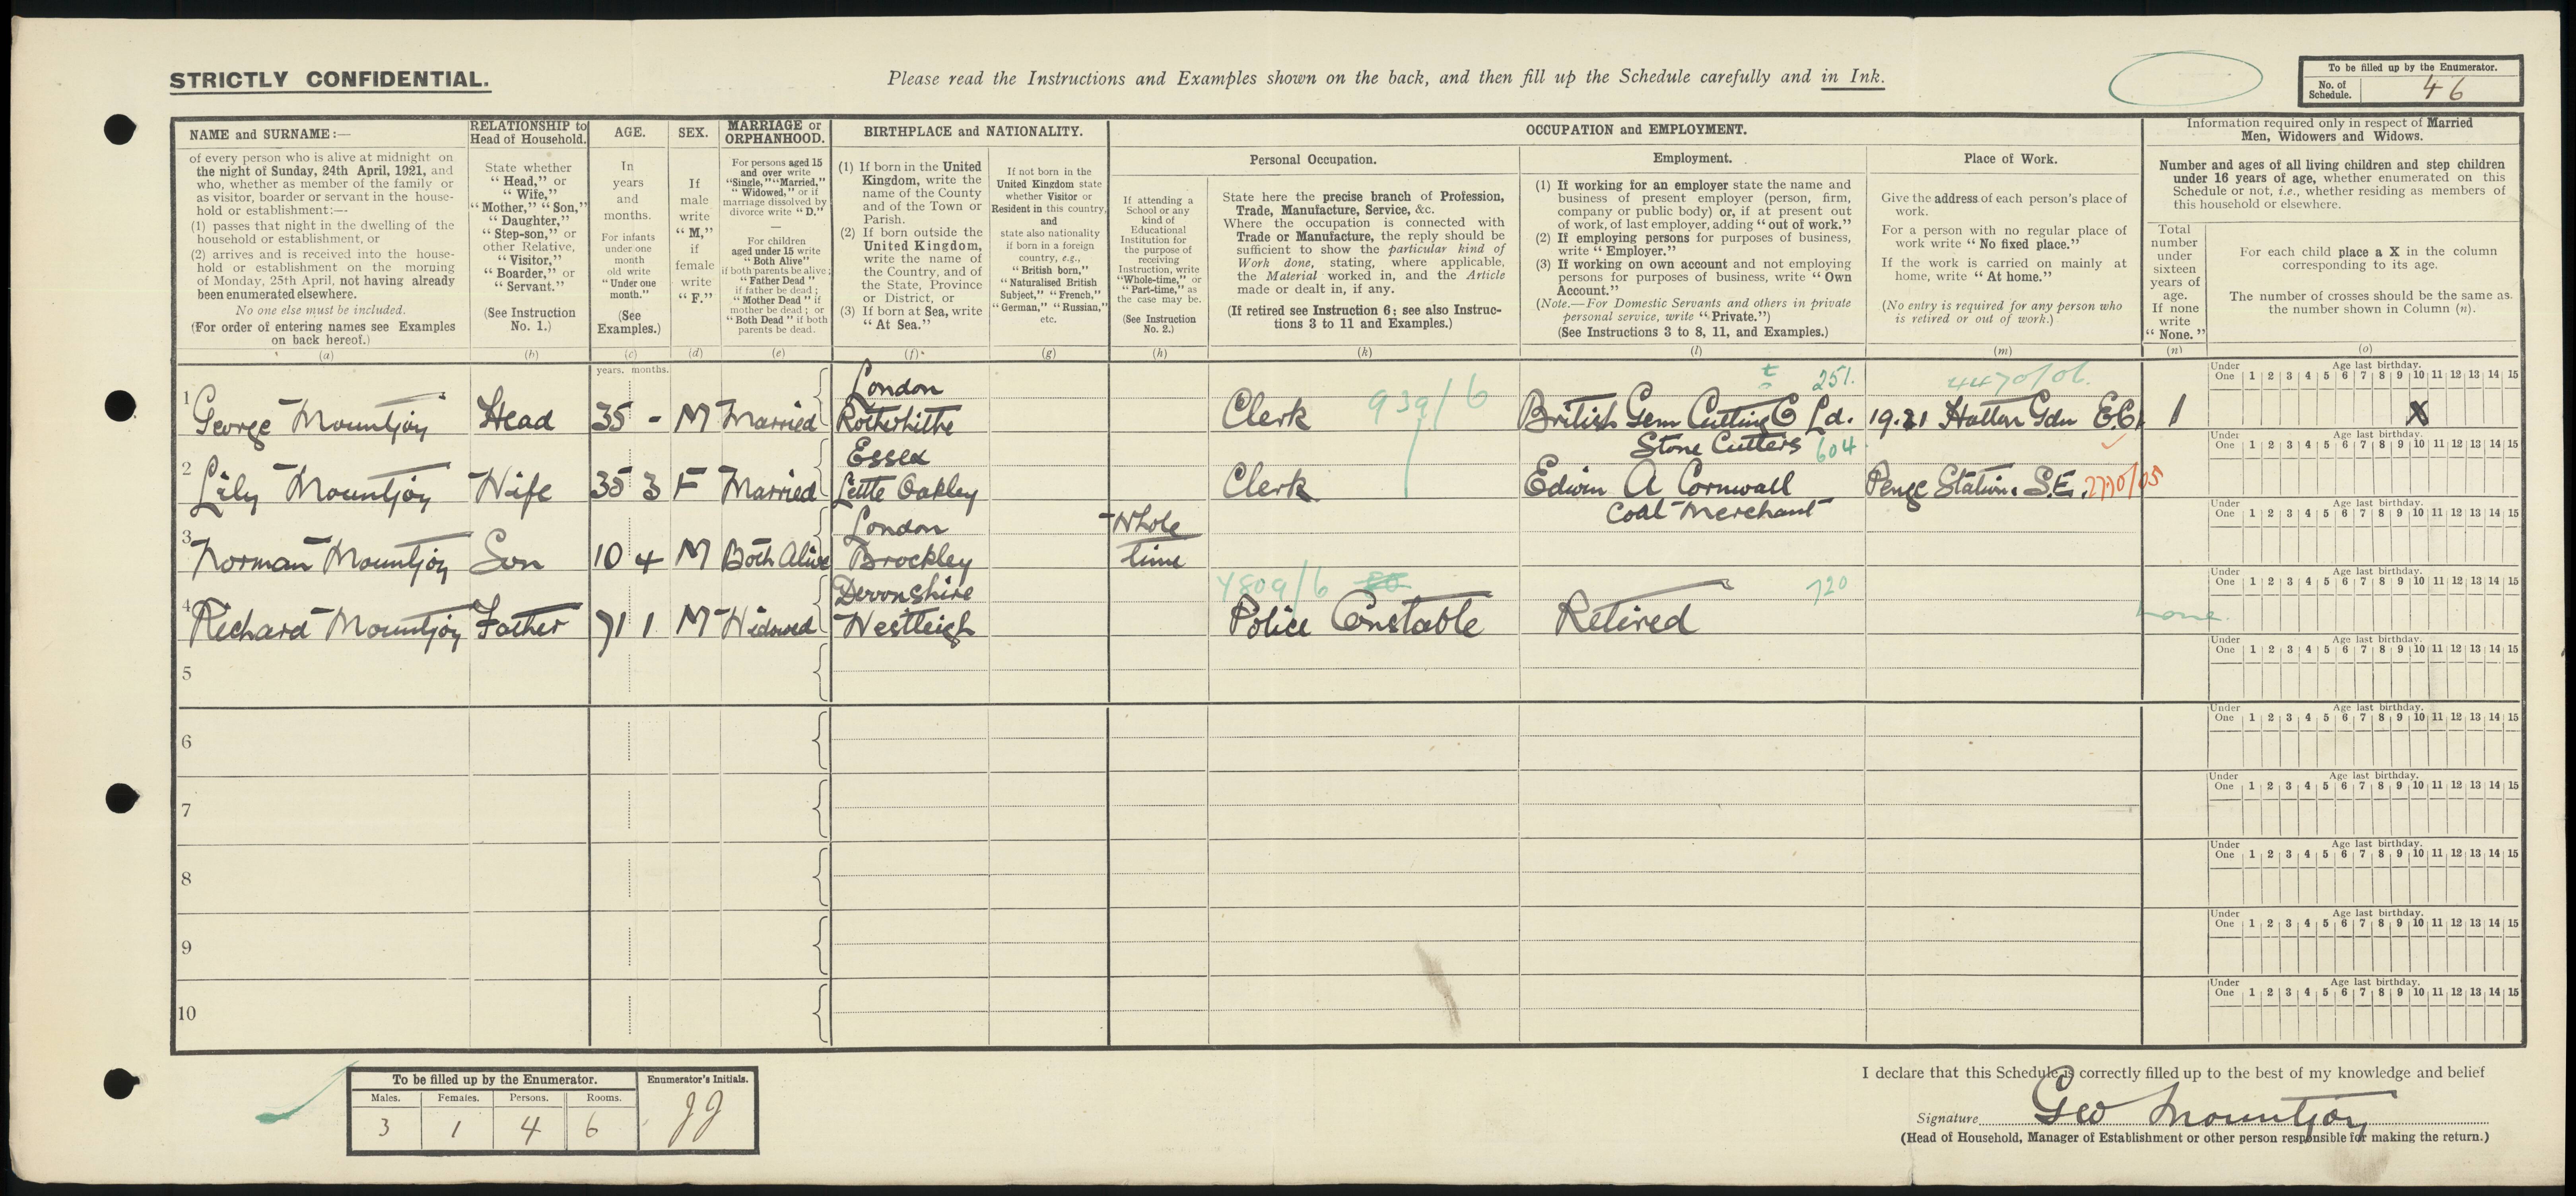 STRICTLY CONFIDENTIAL.
Please read the Instructions and Examples shown on the back, and then fill up the Schedule carefully and in Ink.
To be filled up by the Enumerator.
No. of Schedule. 46
NAME and SURNAME:—
of every person who is alive at midnight on
the night of Sunday, 24th April, 1921, and
who, whether as member of the family or
as visitor, boarder or servant in the house-
hold or establishment:—
(1) passes that night in the dwelling of the
household or establishment, or
(2) arrives and is received into the house-
hold or establishment on the morning
of Monday, 25th April, not having already
been enumerated elsewhere.
No one else must be included.
(For order of entering names see Examples
on back hereof.)
(a)
RELATIONSHIP to
Head of Household.
State whether
"Head," or
"Wife,"
"Mother," "Son,"
"Daughter,"
"Step-son," or
other Relative,
"Visitor,"
"Boarder," or
"Servant."
(See Instruction
No. 1.)
(b)
AGE.
In
years
and
months.
For infants
under one
month
old write
"Under one
month."
(See
Examples.)
(c)
SEX.
If
male
write
"M,"
if
female
write
"F."
(d)
MARRIAGE or
ORPHANHOOD.
For persons aged 15
and over write
"Single," "Married,"
"Widowed," or if
marriage dissolved by
divorce write "D."
—
For children
aged under 15 write
"Both Alive"
if both parents be alive;
"Father Dead"
if father be dead;
"Mother Dead" if
mother be dead; or
"Both Dead" if both
parents be dead.
(e)
BIRTHPLACE and NATIONALITY.
(1) If born in the United
Kingdom, write the
name of the County
and of the Town or
Parish.
(2) If born outside the
United Kingdom,
write the name of
the Country, and of
the State, Province
or District, or
(3) If born at Sea, write
"At Sea."
(f)
If not born in the
United Kingdom state
whether Visitor or
Resident in this country,
and
state also nationality
if born in a foreign
country, e.g.,
"British born,"
"Naturalised British
Subject," "French,"
"German," "Russian,"
etc.
(g)
OCCUPATION and EMPLOYMENT.
If attending a
School or any
kind of
Educational
Institution for
the purpose of
receiving
Instruction, write
"Whole-time," or
"Part-time," as
the case may be.
(See Instruction
No. 2.)
(h)
Personal Occupation.
State here the precise branch of Profession,
Trade, Manufacture, Service, &c.
Where the occupation is connected with
Trade or Manufacture, the reply should be
sufficient to show the particular kind of
Work done, stating, where applicable,
the Material worked in, and the Article
made or dealt in, if any.
(If retired see Instruction 6; see also Instruc-
tions 3 to 11 and Examples.)
(k)
Employment.
(1) If working for an employer state the name and
business of present employer (person, firm,
company or public body) or, if at present out
of work, of last employer, adding "out of work."
(2) If employing persons for purposes of business,
write "Employer."
(3) If working on own account and not employing
persons for purposes of business, write "Own
Account."
(Note.—For Domestic Servants and others in private
personal service, write "Private.")
(See Instructions 3 to 8, 11, and Examples.)
(l)
Place of Work.
Give the address of each person's place of
work.
For a person with no regular place of
work write "No fixed place."
If the work is carried on mainly at
home, write "At home."
(No entry is required for any person who
is retired or out of work.)
(m)
Information required only in respect of Married
Men, Widowers and Widows.
Number and ages of all living children and step children
under 16 years of age, whether enumerated on this
Schedule or not, i.e., whether residing as members of
this household or elsewhere.
Total
number
under
sixteen
years of
age.
If none
write
"None."
(n)
For each child place a X in the column
corresponding to its age.
The number of crosses should be the same as
the number shown in Column (n).
(o)
years. months.
Under One Age last birthday. 1 2 3 4 5 6 7 8 9 10 11 12 13 14 15
London 251. 4470/06.
1 George Mountjoy Head 35 - M Married Rotherhithe Clerk 939/6 British Gem Cutting Co Ld. 19.21 Hatton Gdn E.C.1 1 X
Stone Cutters 604
Under One Age last birthday. 1 2 3 4 5 6 7 8 9 10 11 12 13 14 15
Essex
2 Lily Mountjoy Wife 35 3 F Married Little Oakley Clerk Edwin A Cornwall Penge Station. S.E. 2770/05
Coal Merchant
Under One Age last birthday. 1 2 3 4 5 6 7 8 9 10 11 12 13 14 15
London Whole
3 Norman Mountjoy Son 10 4 M Both Alive Brockley time
Under One Age last birthday. 1 2 3 4 5 6 7 8 9 10 11 12 13 14 15
Devonshire 4809/6 720
4 Richard Mountjoy Father 71 1 M Widowed Westleigh Police Constable Retired none.
Under One Age last birthday. 1 2 3 4 5 6 7 8 9 10 11 12 13 14 15
5
Under One Age last birthday. 1 2 3 4 5 6 7 8 9 10 11 12 13 14 15
6
Under One Age last birthday. 1 2 3 4 5 6 7 8 9 10 11 12 13 14 15
7
Under One Age last birthday. 1 2 3 4 5 6 7 8 9 10 11 12 13 14 15
8
Under One Age last birthday. 1 2 3 4 5 6 7 8 9 10 11 12 13 14 15
9
Under One Age last birthday. 1 2 3 4 5 6 7 8 9 10 11 12 13 14 15
10
To be filled up by the Enumerator.
Males. Females. Persons. Rooms.
3 1 4 6
Enumerator's Initials.
JJ
I declare that this Schedule is correctly filled up to the best of my knowledge and belief
Signature Geo Mountjoy
(Head of Household, Manager of Establishment or other person responsible for making the return.)